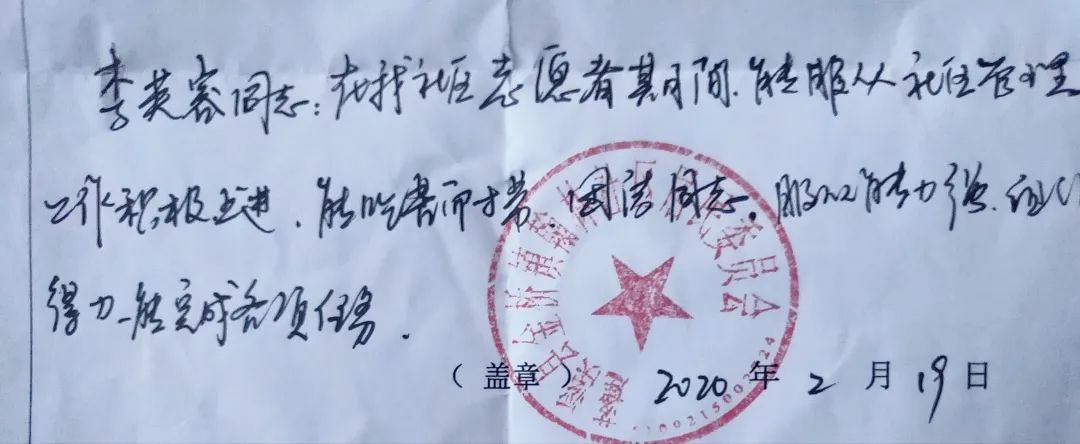 李英容同志：在我社区志愿者其间，能服从社区管理
工作积极上进、能吃苦而于劳、团洁同志，服从能力强、
得力、能完成各项任务.
委员会
（盖章） 2020 年 2 月 19 日